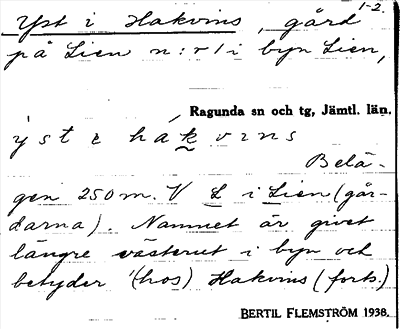 1-2.
Yst i Hakvins, gård
på Lien n:r 1 i byn Lien,
Ragunda sn och tg, Jämtl. län.
ýst e hák vins
Belä-
gen 250 m. V L i Lien (går-
darna). Namnet är givet
längre västerut i byn och
betyder '(hos) Hakvins (forts.)
BERTIL FLEMSTRÖM 1938.